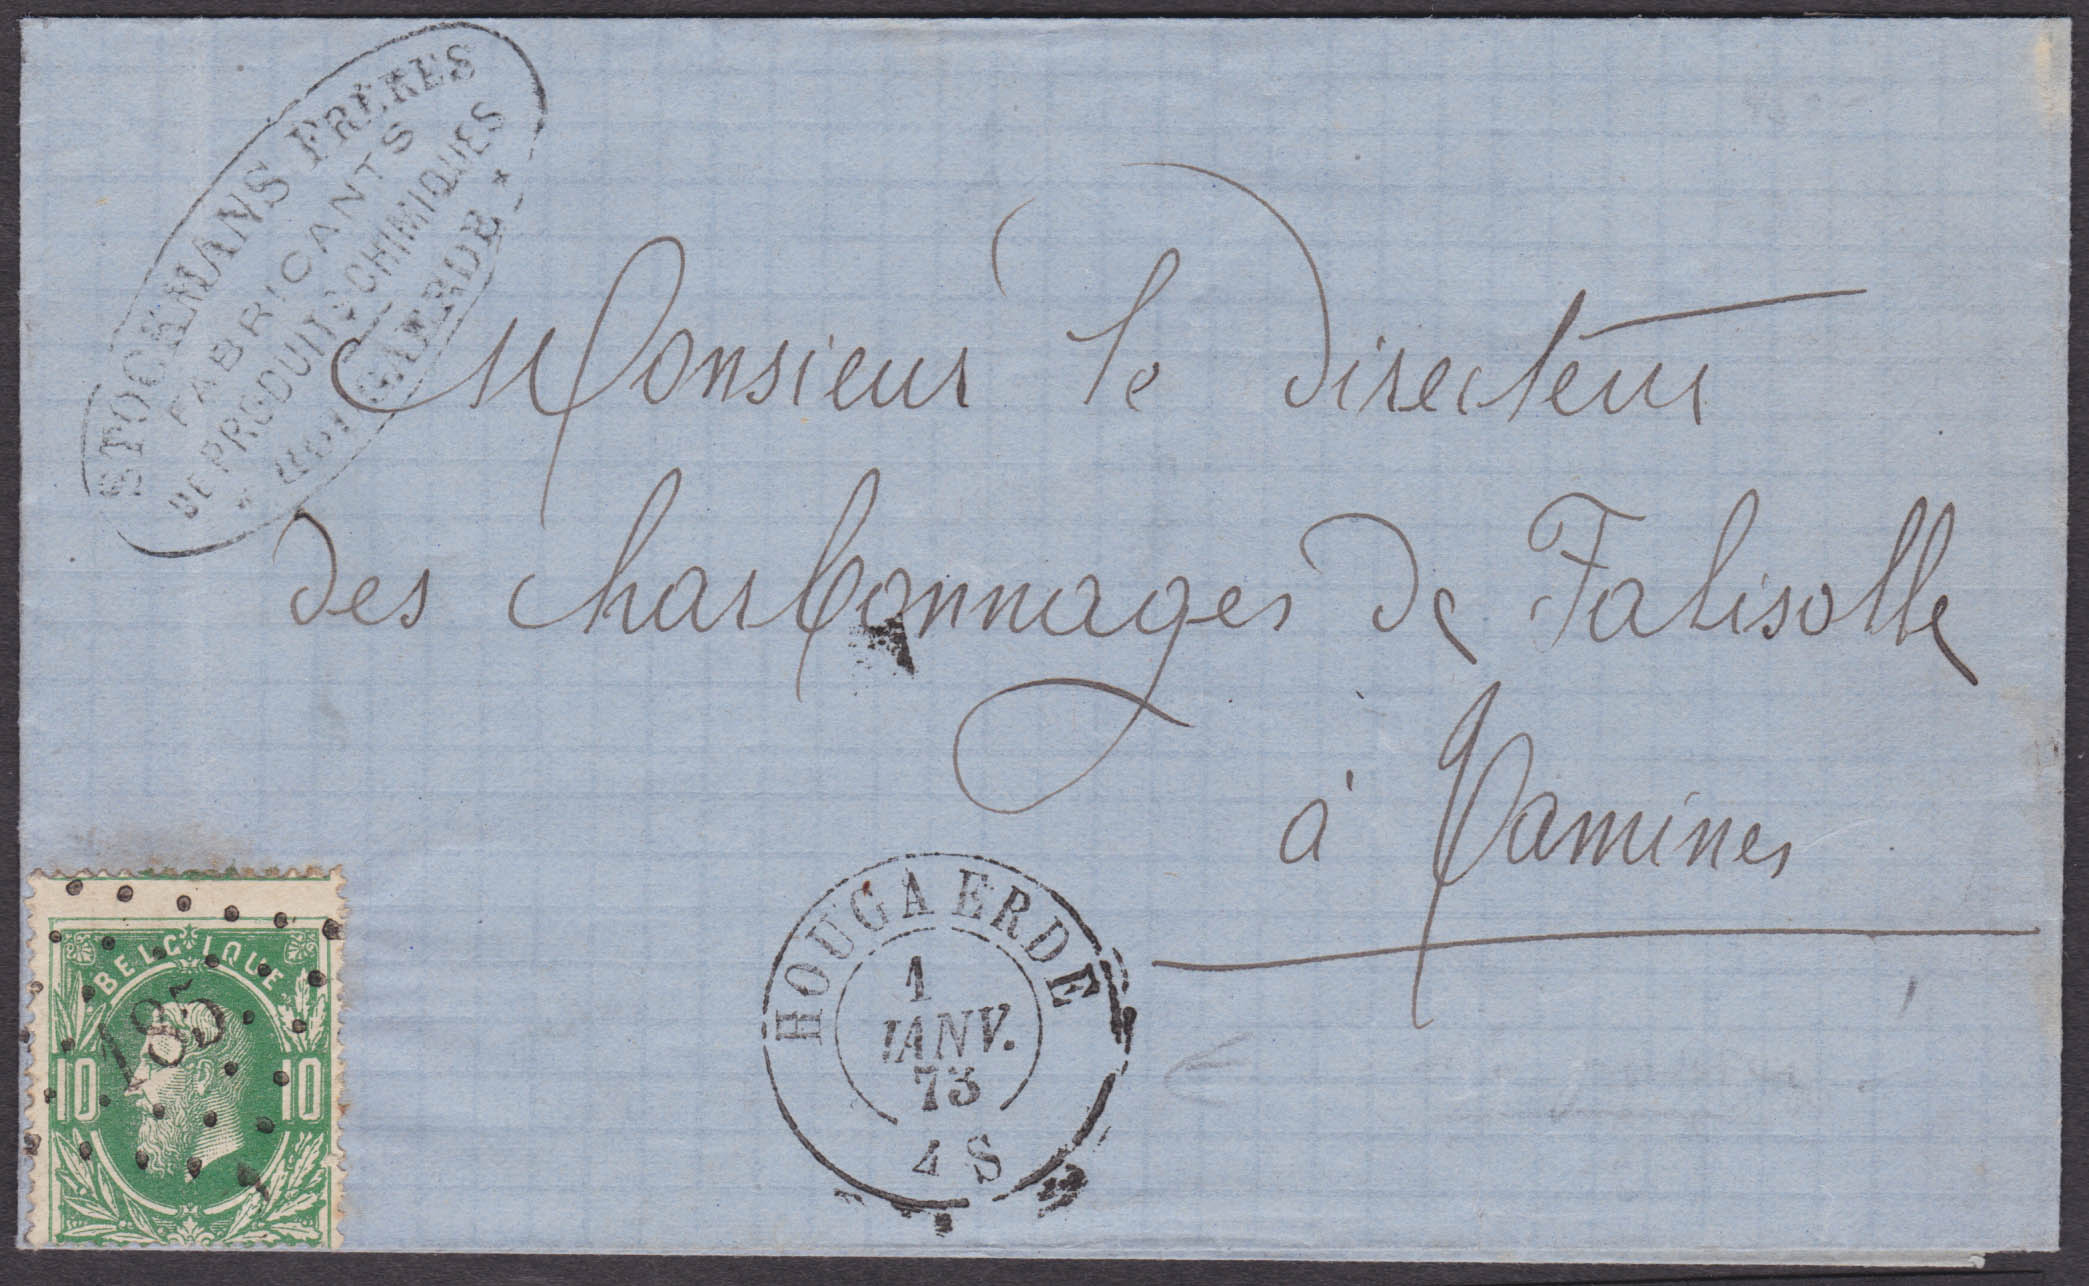 STOCKMANS FRÈRES
FABRICANTS
DE PRODUITS CHIMIQUES
HOUGAERDE
Monsieur le Directeur
des charbonnages de Falisolle
à Tamines
BELGIQUE
185
10 10
HOUGAERDE
1
JANV.
73
4 S